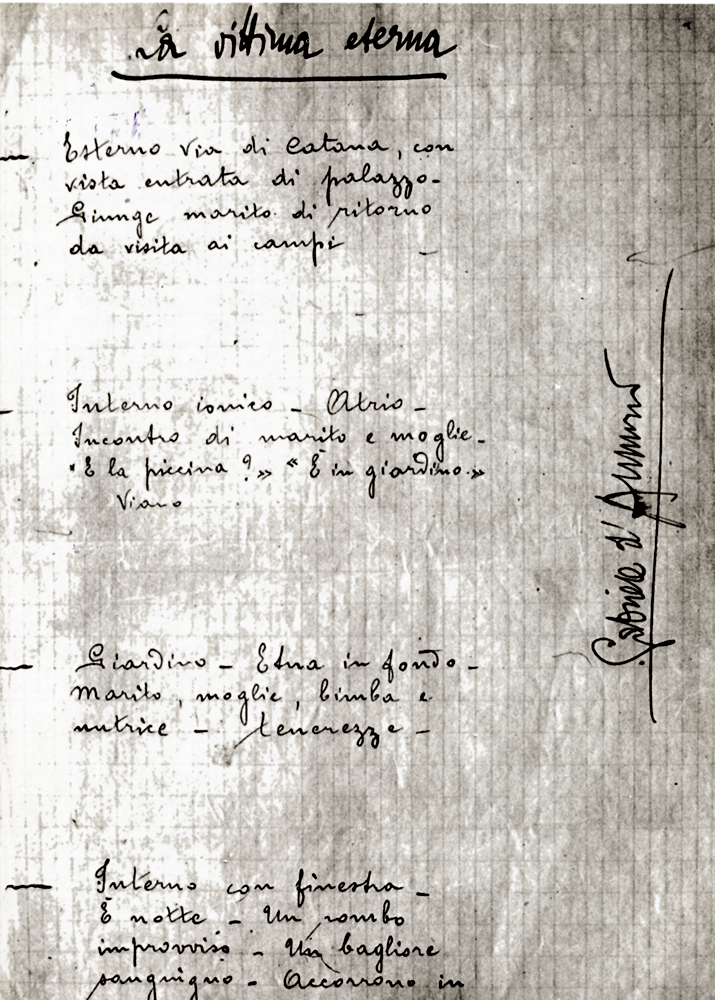 La vittima eterna
— Esterno via di Catana, con
vista entrata di palazzo-
Giunge marito di ritorno
da visita ai campi —
— Interno ionico — Atrio —
Incontro di marito e moglie-
"E la piccina?» "È in giardino.»
Viano
— Giardino — Etna in fondo —
Marito, moglie, bimba e
nutrice — tenerezze —
— Interno con finestra —
È notte — Un rombo
improvviso — Un bagliore
sanguigno — Accorrono in
Gabriele d'Annunzio